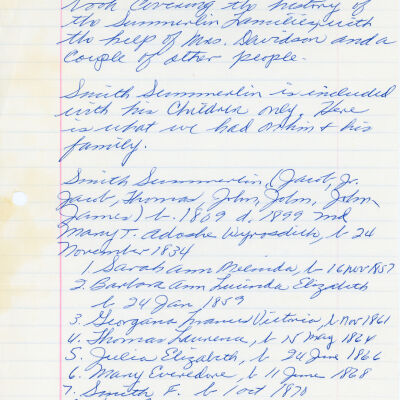 book covering the history of
the Summerlin Families, with
the help of Mrs. Davidson and a
couple of other people.
Smith Summerlin is included
with his Children only. Here
is what we had on him + his
family.
Smith Summerlin, (Jacob, Jr.
Jacob, Thomas, John, John, John,
James) b. 1809 d. 1899 md
Mary T. Adoshe b. 24
November 1834
1 Sarah Ann Melinda, b 16 Nov 1857
2. Barbara Ann Lucinda Elizabeth
b 24 Jan 1859
3. Georgana Frances Victoria, b Nov 1861
4. Thomas Laurence, b 15 May 1864
5. Julia Elizabeth, b 24 June 1866
6. Mary Everedore, b 11 June 1868
7. Smith F. b 1 Oct 1870